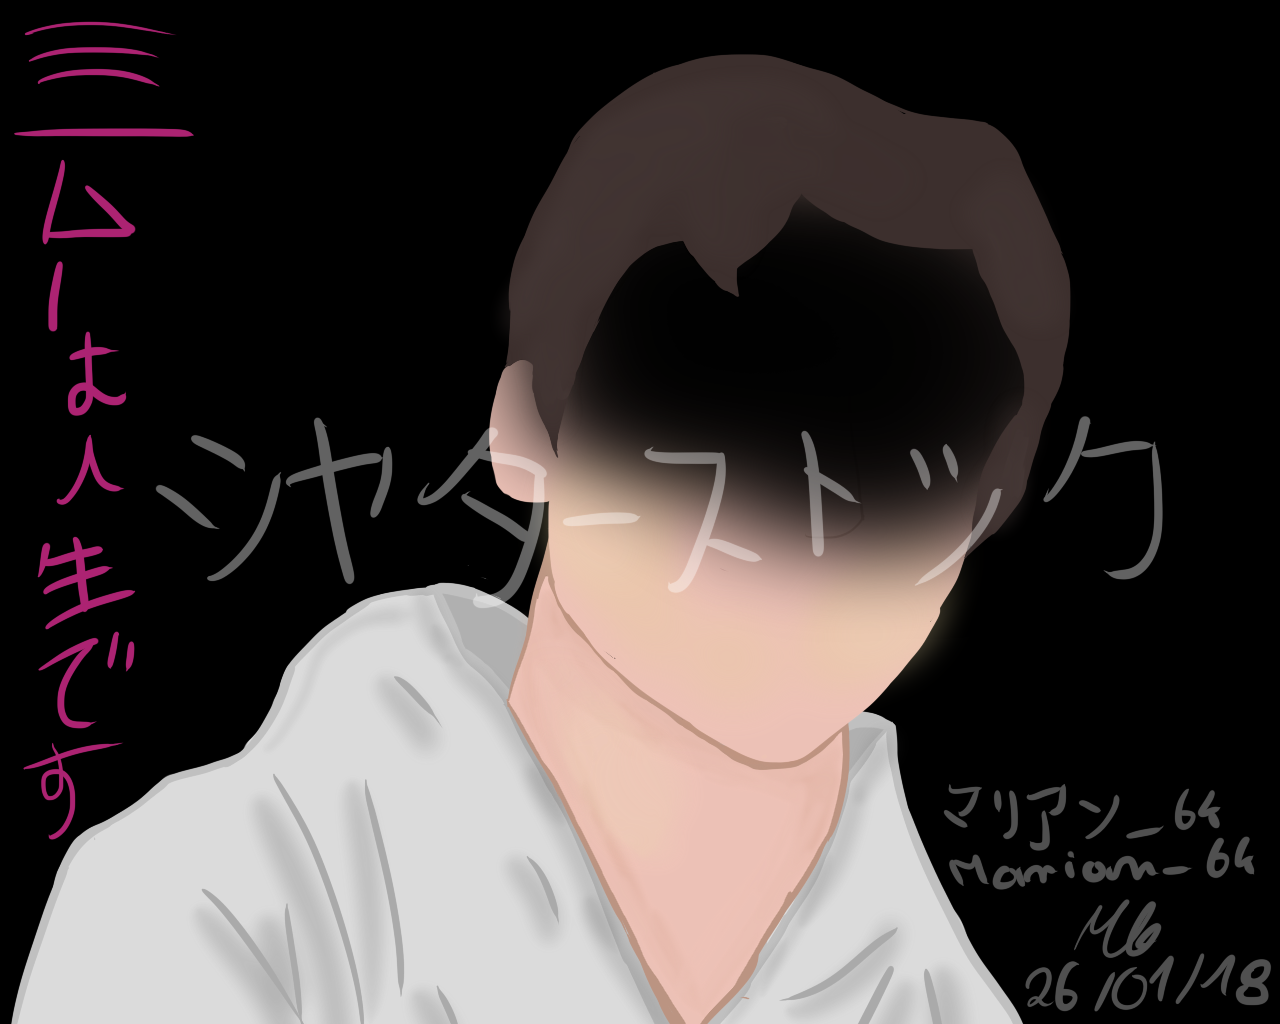 ミームは人生です
シャターストック
マリアン_64
Marian_64
MG
26/01/18